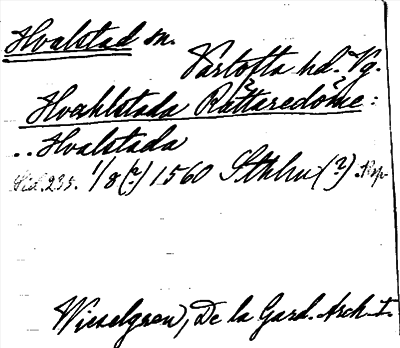 Hvalstad sn.
Vartofta hd. Vg.
Hvahlstada Råttaredöme:
.. Hvalstada
Sid. 235. 1/8 (?) 1560 Sthlm (?). Kop.
Wieselgren, De la Gard. Arch. I.